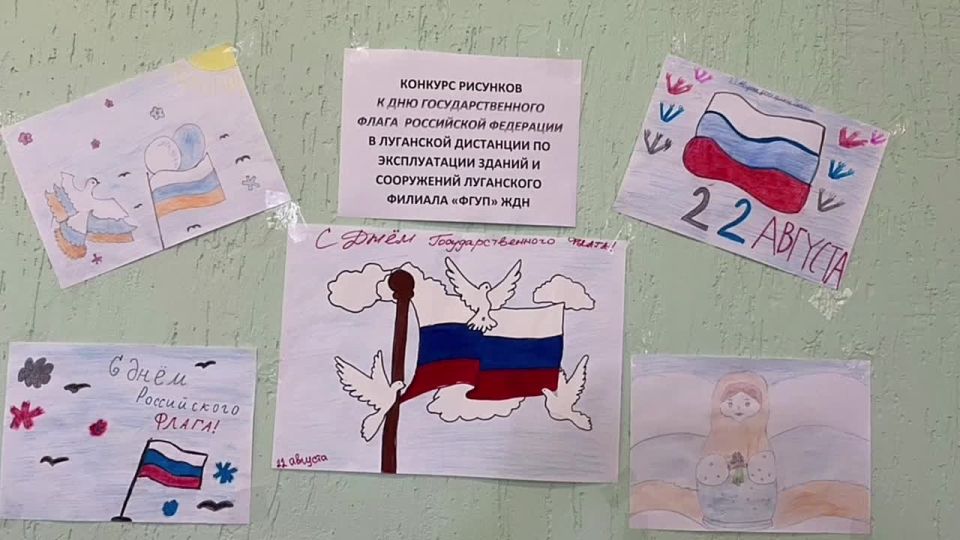 КОНКУРС РИСУНКОВ
К ДНЮ ГОСУДАРСТВЕННОГО
ФЛАГА РОССИЙСКОЙ ФЕДЕРАЦИИ
В ЛУГАНСКОЙ ДИСТАНЦИИ ПО
ЭКСПЛУАТАЦИИ ЗДАНИЙ И
СООРУЖЕНИЙ ЛУГАНСКОГО
ФИЛИАЛА «ФГУП» ЖДН
22 АВГУСТА
С Днём Государственного флага!
22 августа
С днём
Российского
ФЛАГА!